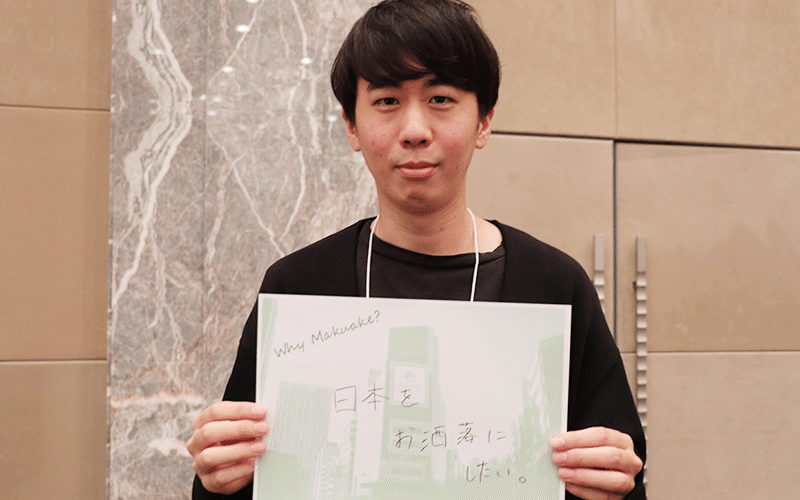 Why Makuake?
日本を
お洒落に
したい。